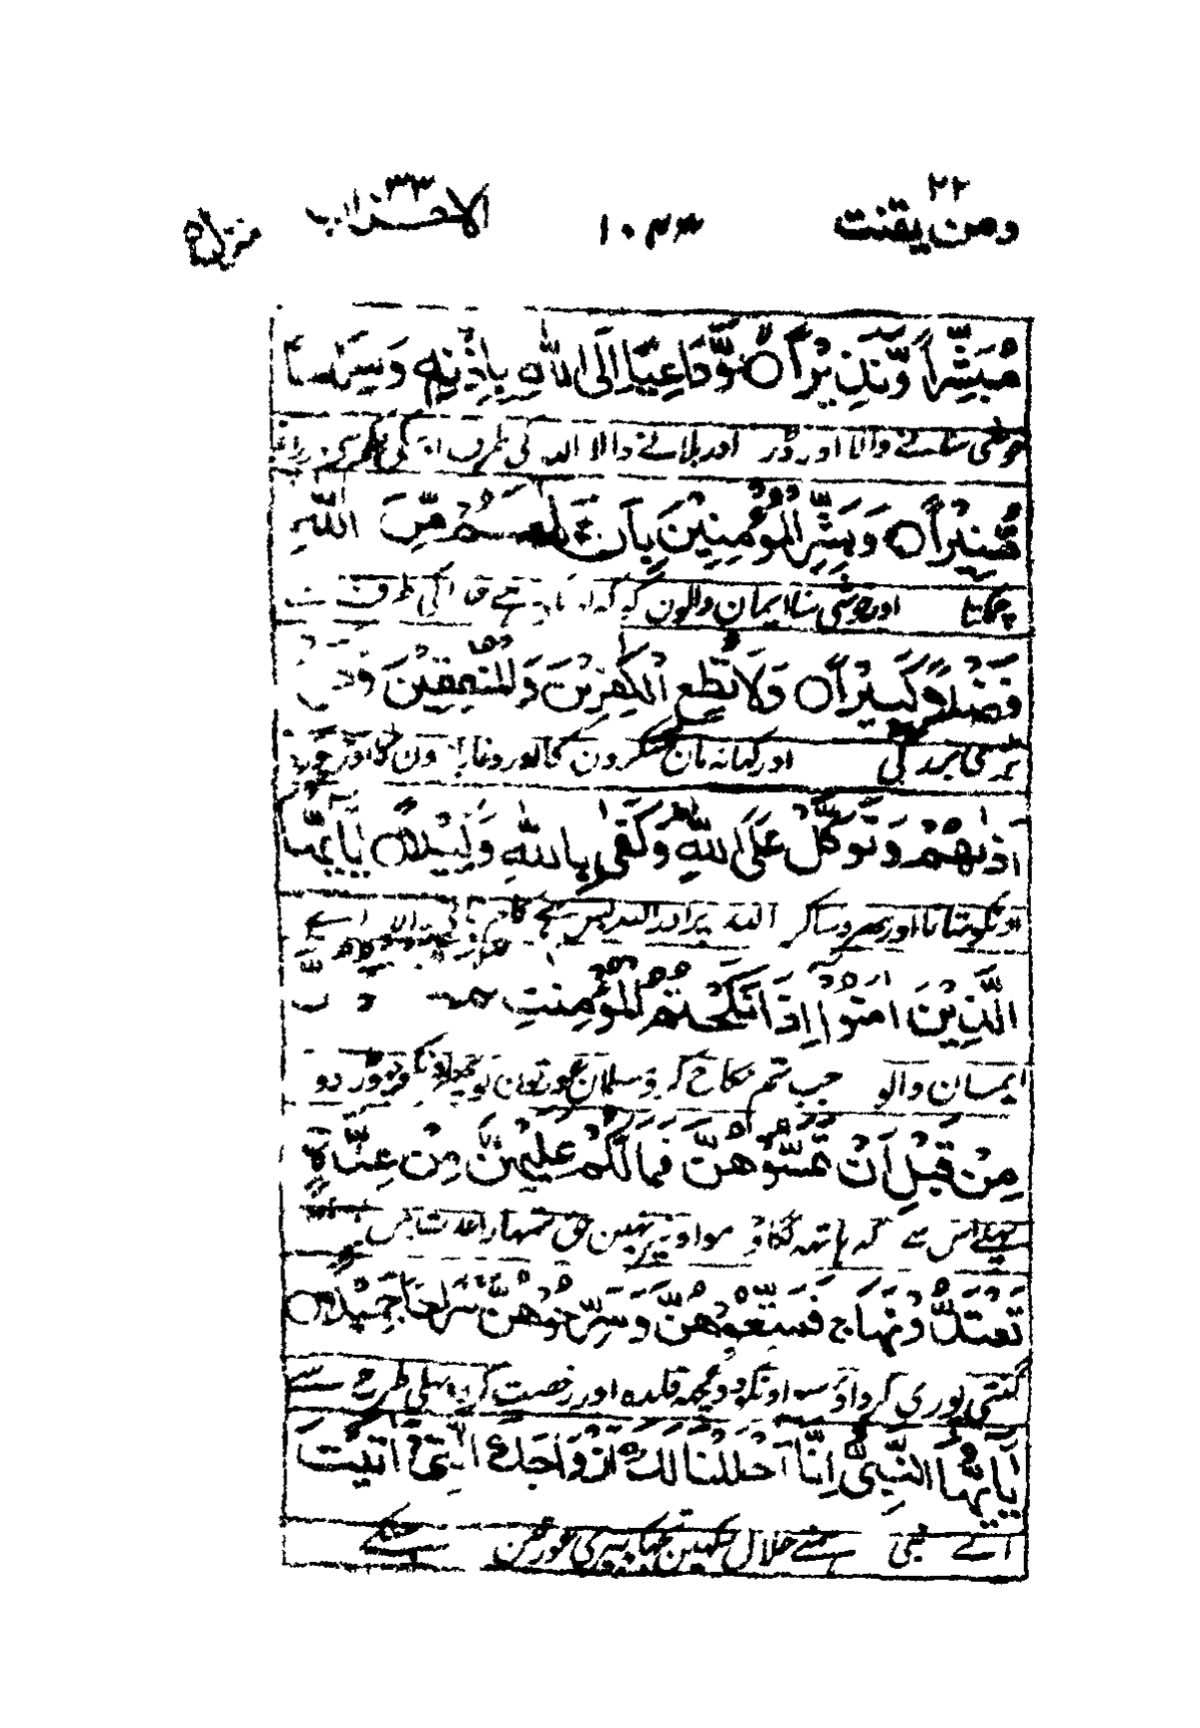 ومن يقنت ٢٢ ١٠٤٤ الاحزاب ٣٣ منزل ٥
مُبَشِّرًا وَّنَذِيْرًا ○ وَّدَاعِيًا اِلَى اللّٰهِ بِاِذْنِهٖ وَسِرَاجًا
خوشی سنانے والا اور ڈر اور بلانے والا اللہ کی طرف
مُّنِيْرًا ○ وَبَشِّرِ الْمُؤْمِنِيْنَ بِاَنَّ لَهُمْ مِّنَ اللّٰهِ
چمکتا اور خوشی سنا ایمان والون کو کہ خدا کی طرف
فَضْلًا كَبِيْرًا ○ وَلَا تُطِعِ الْكٰفِرِيْنَ وَالْمُنٰفِقِيْنَ وَدَعْ
بڑی بزرگی اور کہا نہ مان منکرون کا اور دغابازون کا اور چھوڑ
اَذٰىهُمْ وَتَوَكَّلْ عَلَى اللّٰهِ وَكَفٰى بِاللّٰهِ وَكِيْلًا ○ يٰٓاَيُّهَا
اونکو ستانا اور بھروسا کر اللہ پر اور اللہ بس ہے کام اے
الَّذِيْنَ اٰمَنُوْٓا اِذَا نَكَحْتُمُ الْمُؤْمِنٰتِ
ایمان والو جب تم نکاح کرو مسلمان عورتون کو پھر اونکو چھوڑ دو
مِنْ قَبْلِ اَنْ تَمَسُّوْهُنَّ فَمَا لَكُمْ عَلَيْهِنَّ مِنْ عِدَّةٍ
پہلے اس سے کہ ہاتھ لگاؤ سو اونپر نہین حق تمہارا عدت
تَعْتَدُّوْنَهَا ج فَمَتِّعُوْهُنَّ وَسَرِّحُوْهُنَّ سَرَاحًا جَمِيْلًا ○
گنتی پوری کرواؤ سو اونکو دو کچھ فائدہ اور رخصت کرو بھلی طرح سے
يٰٓاَيُّهَا النَّبِىُّ اِنَّآ اَحْلَلْنَا لَكَ اَزْوَاجَكَ الّٰتِىْٓ اٰتَيْتَ
اے نبی ہمنے حلال تیری عورتین جنکے